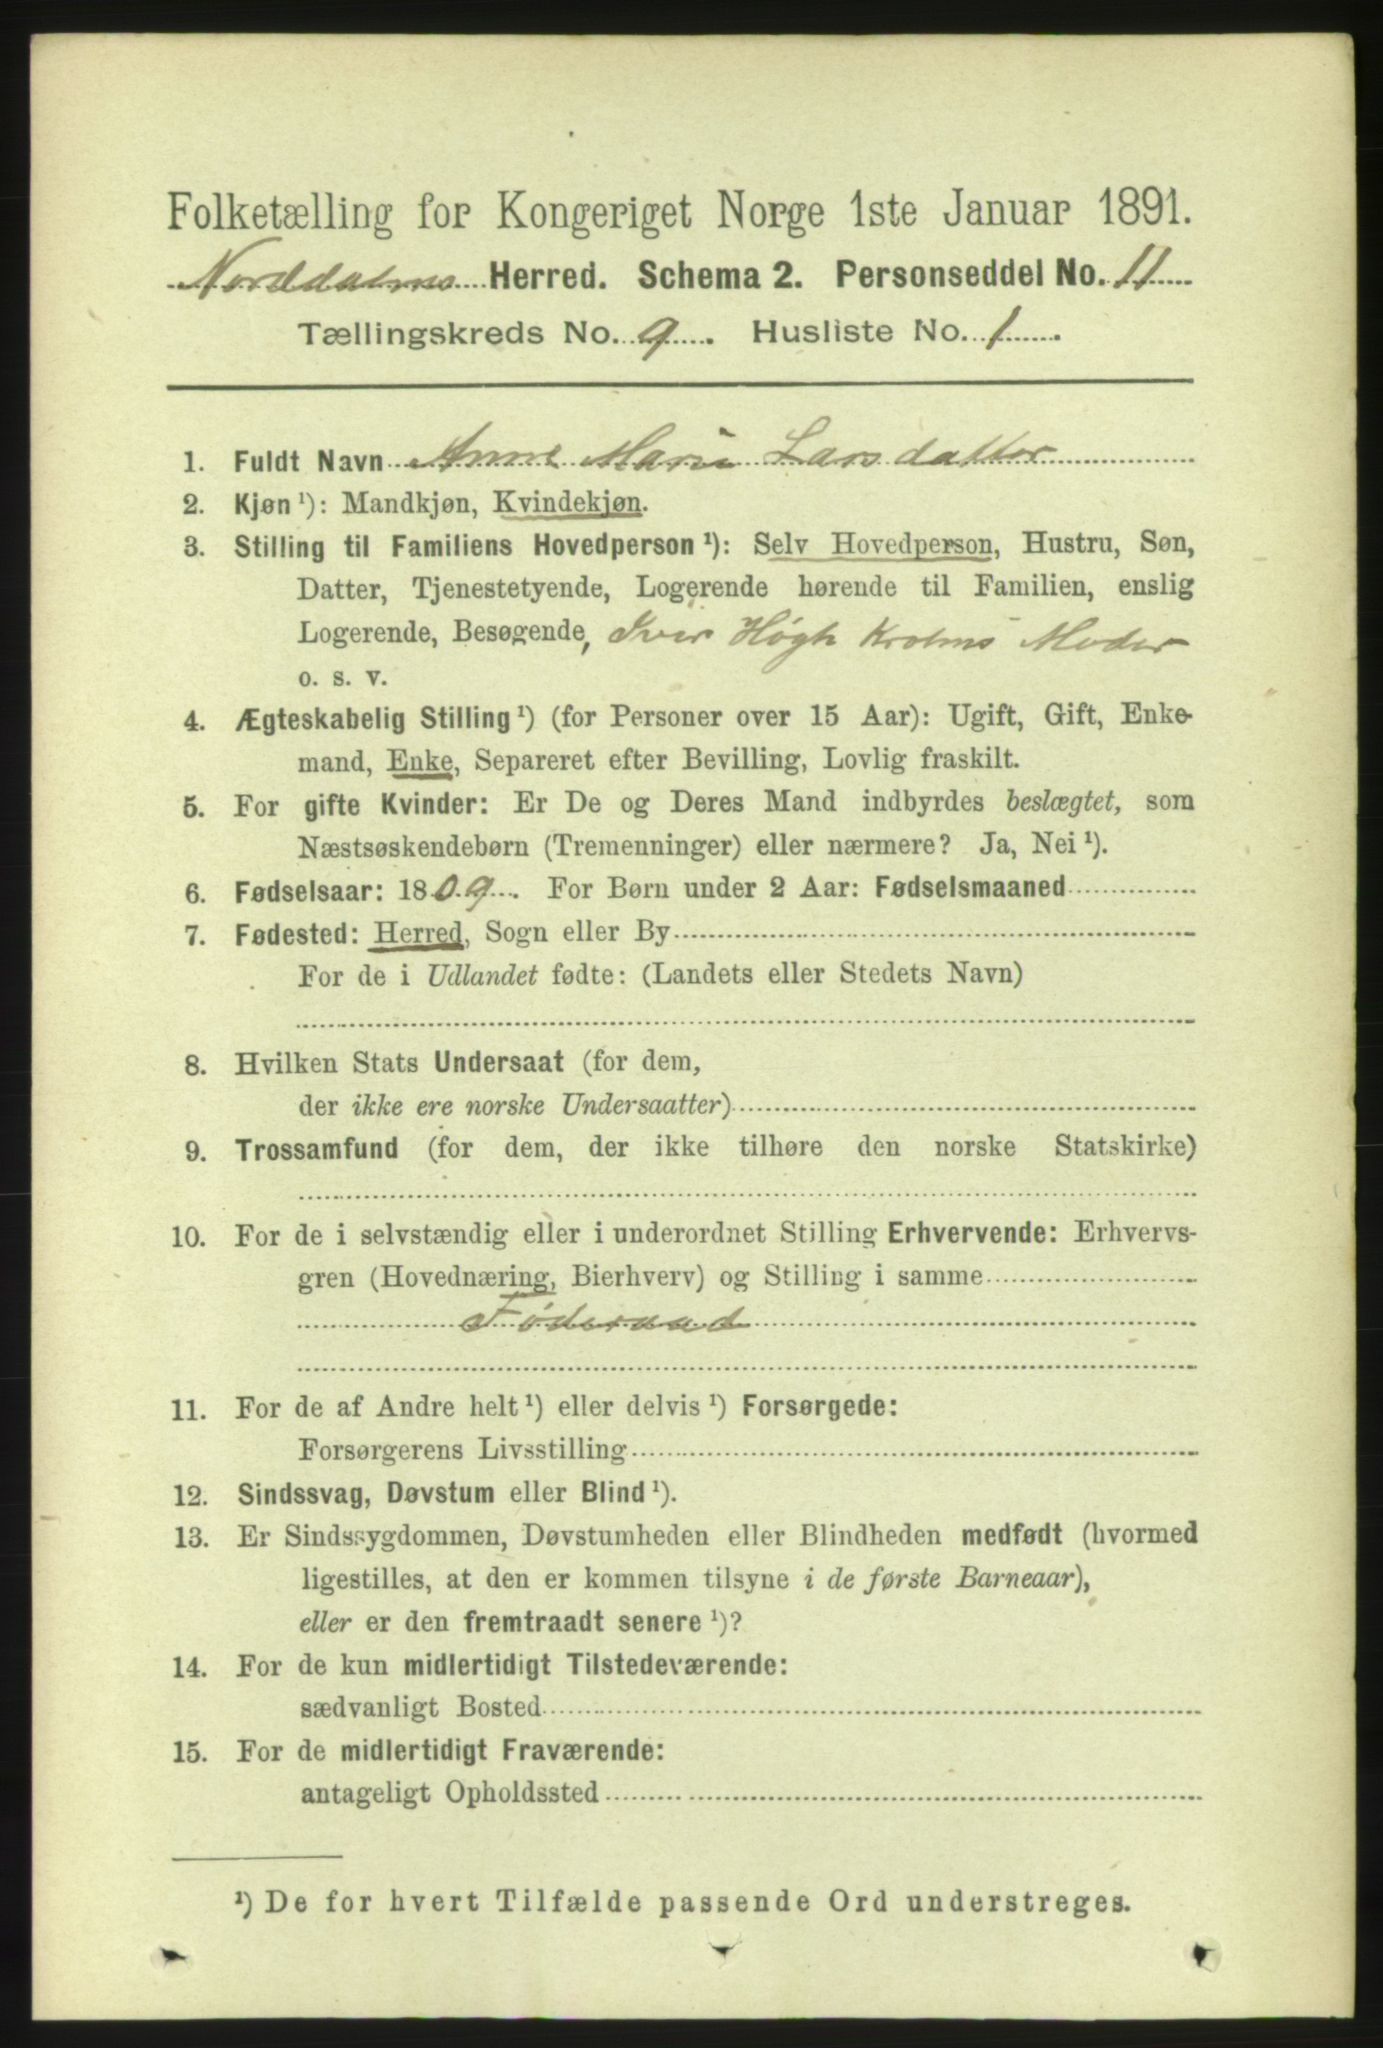 Folketælling for Kongeriget Norge 1ste Januar 1891.
Norddalens Herred. Schema 2. Personseddel No. 11
Tællingskreds No. 9. Husliste No. 1.
1. Fuldt Navn Anne Marie Larsdatter
2. Kjøn ¹): Mandkjøn, Kvindekjøn.
3. Stilling til Familiens Hovedperson ¹): Selv Hovedperson, Hustru, Søn,
Datter, Tjenestetyende, Logerende hørende til Familien, enslig
Logerende, Besøgende, Iver Høgh Moder
o. s. v.
4. Ægteskabelig Stilling ¹) (for Personer over 15 Aar): Ugift, Gift, Enke-
mand, Enke, Separeret efter Bevilling, Lovlig fraskilt.
5. For gifte Kvinder: Er De og Deres Mand indbyrdes beslægtet, som
Næstsøskendebørn (Tremenninger) eller nærmere? Ja, Nei ¹).
6. Fødselsaar: 1809. For Børn under 2 Aar: Fødselsmaaned
7. Fødested: Herred, Sogn eller By
For de i Udlandet fødte: (Landets eller Stedets Navn)
8. Hvilken Stats Undersaat (for dem,
der ikke ere norske Undersaatter)
9. Trossamfund (for dem, der ikke tilhøre den norske Statskirke)
10. For de i selvstændig eller i underordnet Stilling Erhvervende: Erhvervs-
gren (Hovednæring, Bierhverv) og Stilling i samme
Føderaad
11. For de af Andre helt ¹) eller delvis ¹) Forsørgede:
Forsørgerens Livsstilling
12. Sindssvag, Døvstum eller Blind ¹).
13. Er Sindssygdommen, Døvstumheden eller Blindheden medfødt (hvormed
ligestilles, at den er kommen tilsyne i de første Barneaar),
eller er den fremtraadt senere ¹)?
14. For de kun midlertidigt Tilstedeværende:
sædvanligt Bosted
15. For de midlertidigt Fraværende:
antageligt Opholdssted
¹) De for hvert Tilfælde passende Ord understreges.